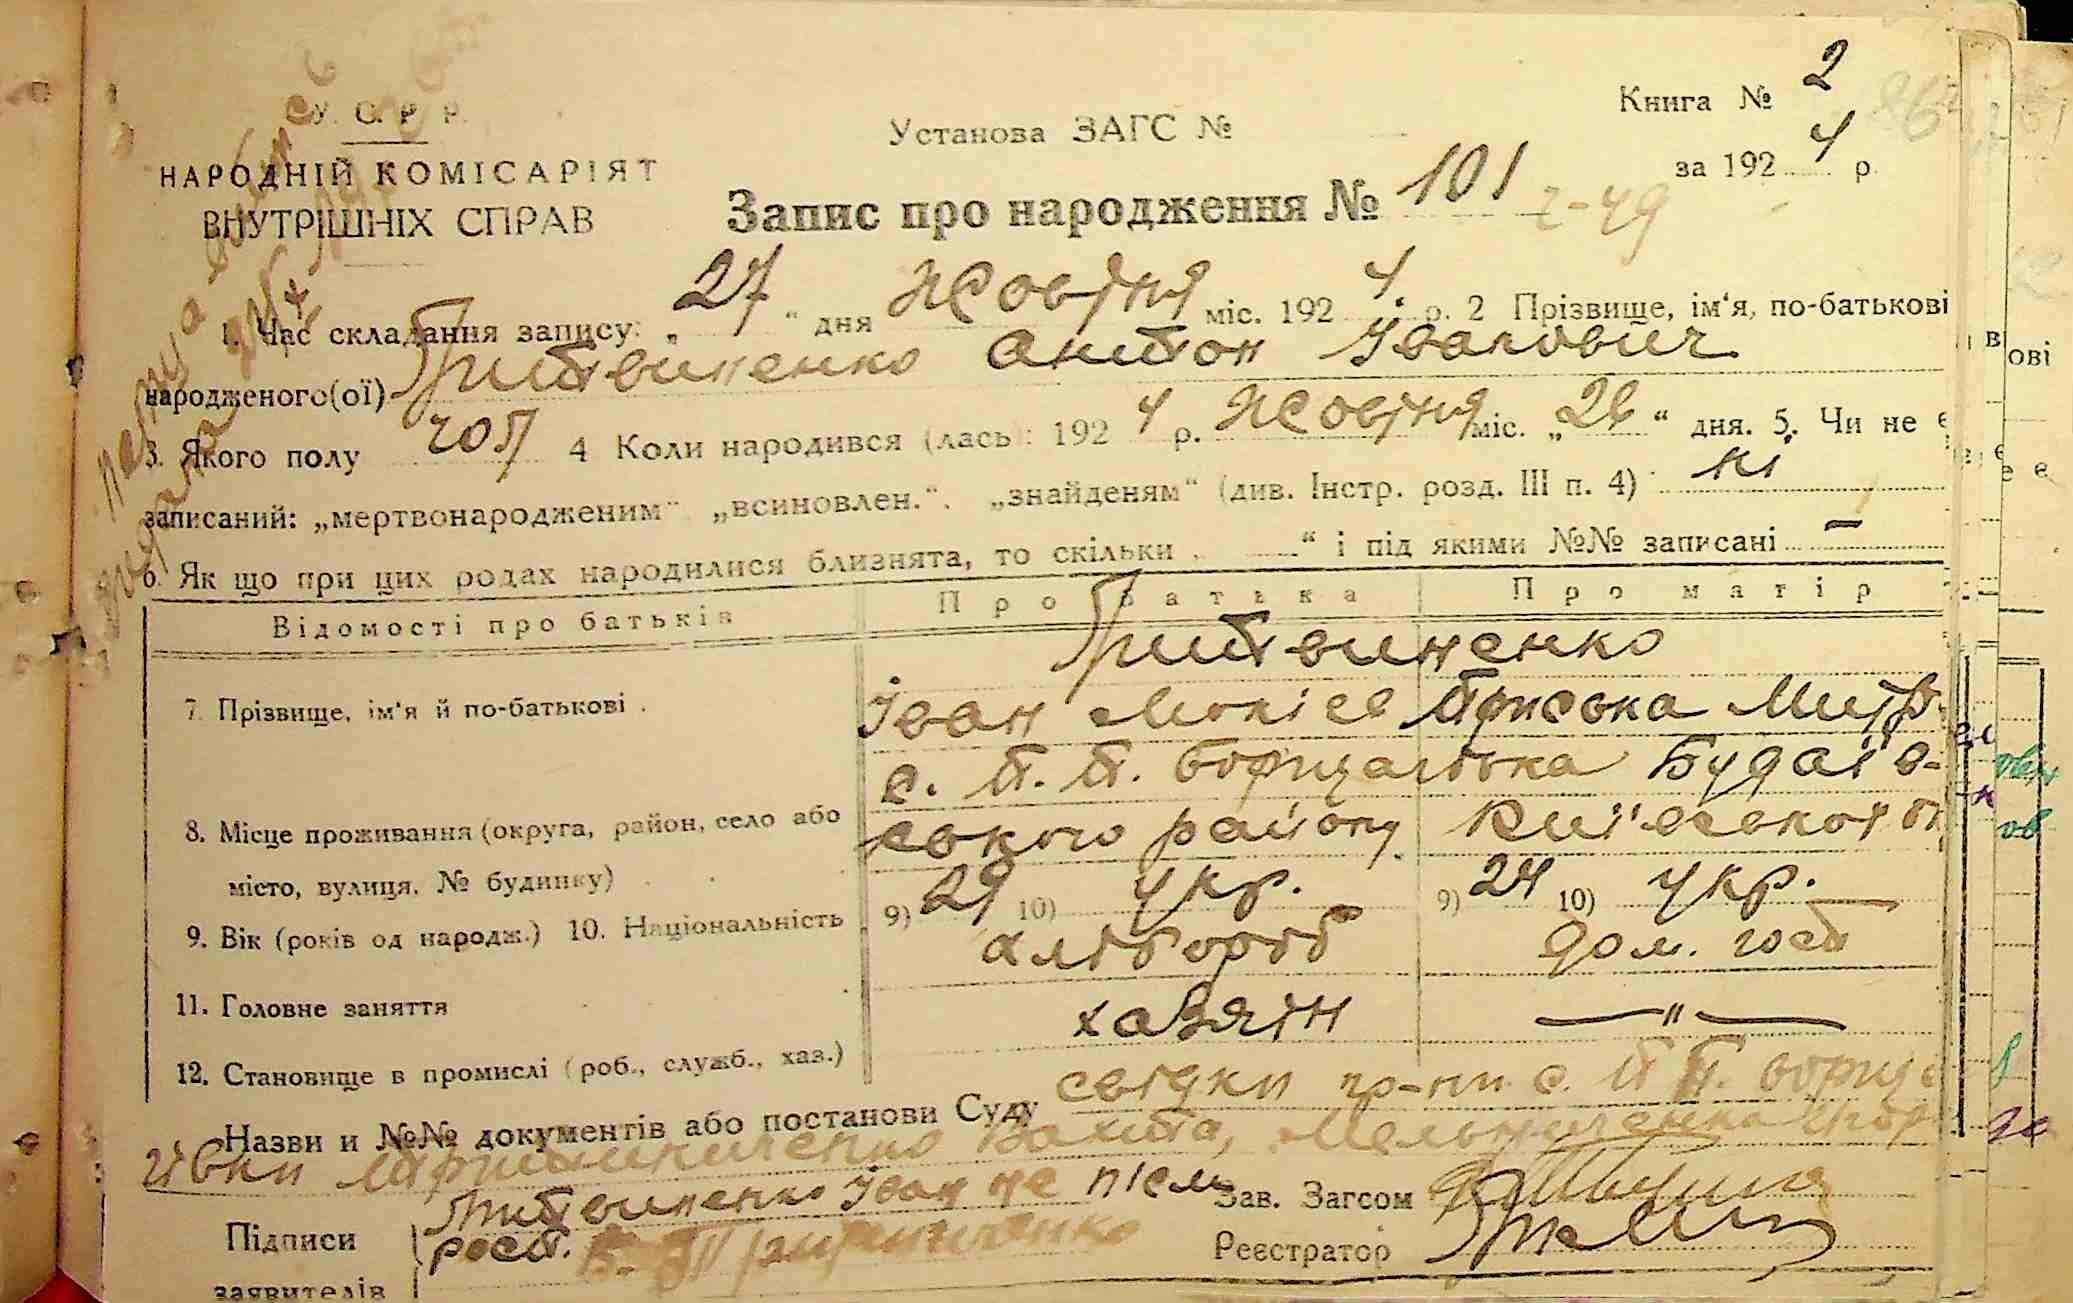 Книга № 2
У. С. Р. Р.
Установа ЗАГС №
за 1924 р.
НАРОДНІЙ КОМІСАРІЯТ
ВНУТРІШНІХ СПРАВ
Запис про народження № 101
1. Час складання запису: „27“ дня Жовтня міс. 1924 р. 2 Прізвище, ім‘я, по-батькові
народженого(ої) Литвиненко Антон Іванович
3. Якого полу чол 4 Коли народився (лась): 1924 р. Жовтня міс. „26“ дня. 5. Чи не є
записаний: „мертвонародженим“ „всиновлен.“. „знайденям“ (див. Інстр. розд. III п. 4) ні
6. Як що при цих родах народилися близнята, то скільки „ “ і під якими №№ записані —
Відомості про батьків Про батька Про матір
Литвиненко
7. Прізвище, ім‘я й по-батькові Іван Мокіев Приська Митр.
с. П. П. Борщагівка Будаів-
8. Місце проживання (округа, район, село або ського району Київськоі
місто, вулиця, № будинку)
9. Вік (років од народж.) 10. Національність 9) 29 10) укр. 9) 24 10) укр.
11. Головне заняття хлібороб дом. госп
12. Становище в промислі (роб., служб., хаз.) хазяїн — " —
Назви и №№ документів або постанови Суду свідки гр-ни с. П. П. Борща
гівки
Литвиненко Іван не письм
Зав. Загсом
Підписи
Реєстратор
заявителів